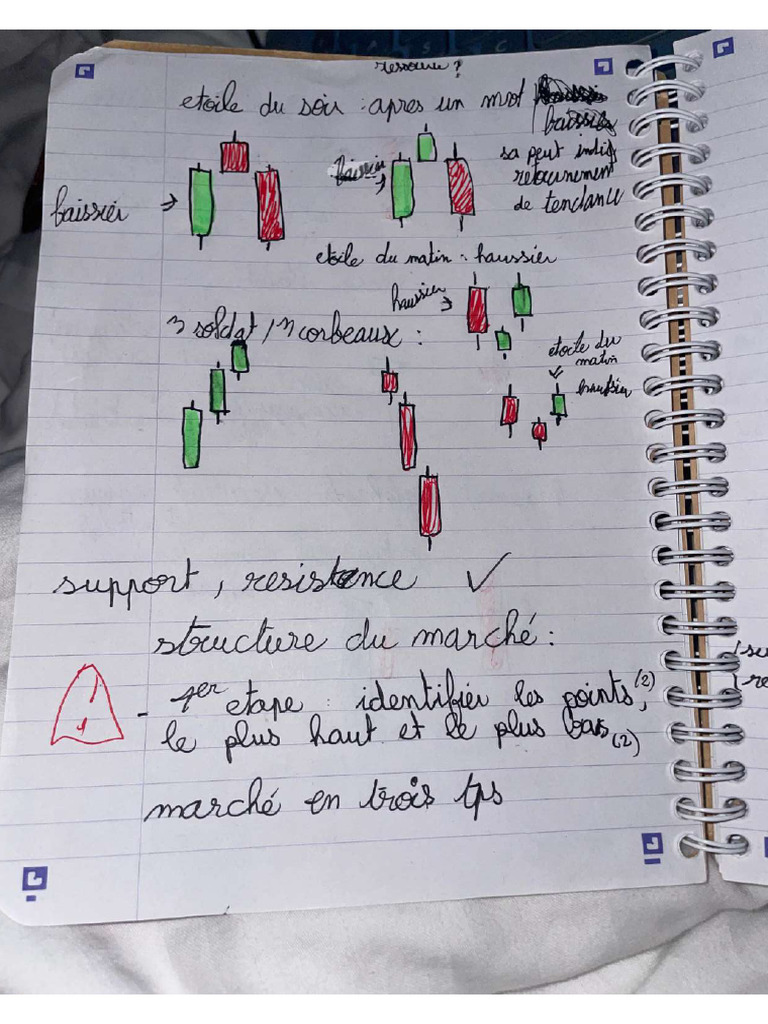 ressource ?
etoile du soir : apres un mvt
baissier
sa peut indiq
retournement
de tendance
baissier
baissier
etoile du matin : haussier
haussier
3 soldat / 3 corbeaux :
etoile du
matin
haussier
support, resistence ✓
structure du marché :
- 1er etape : identifier les points, (2)
le plus haut et le plus bas (2)
marché en trois tps
su
re